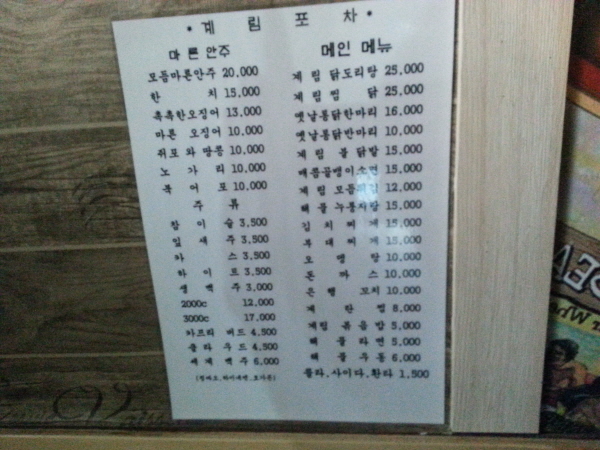 •계림포차•
마른안주
모듬마른안주 20,000
한치 15,000
촉촉한오징어 13,000
마른 오징어 10,000
쥐포와땅콩 10,000
노가리 10,000
북어포 10,000
주류
참이슬 3,500
잎새주 3,500
카스 3,500
하이트 3,500
생맥주 3,000
2000c 12,000
3000c 17,000
카프리 버드 4,500
클라우드 4,500
세계맥주 6,000
메인 메뉴
계림 닭도리탕 25,000
계림찜닭 25,000
옛날통닭한마리 16,000
옛날통닭반마리 10,000
계림 불닭발 15,000
매콤골뱅이소면 15,000
계림 모듬튀김 12,000
해물누룽지탕 15,000
김치찌개 15,000
부대찌개 15,000
오뎅탕 10,000
돈까스 10,000
은행꼬치 10,000
계란찜 8,000
계림 볶음밥 5,000
해물라면 5,000
해물우동 6,000
콜라.사이다.환타 1,500